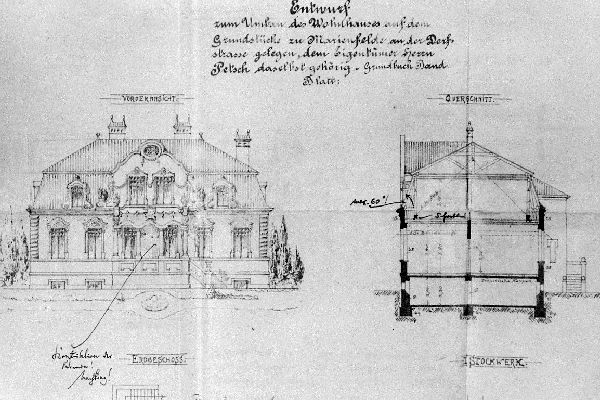 Entwurf
zum Umbau des Wohnhauses auf dem
Grundstücke zu Marienfelde an der Dorf-
strasse gelegen, dem Eigentümer Herrn
Petsch daselbst gehörig. Grundbuch Band
Blatt:
VORDERANSICHT.
QUERSCHNITT.
ERDGESCHOSS.
I STOCKWERK.